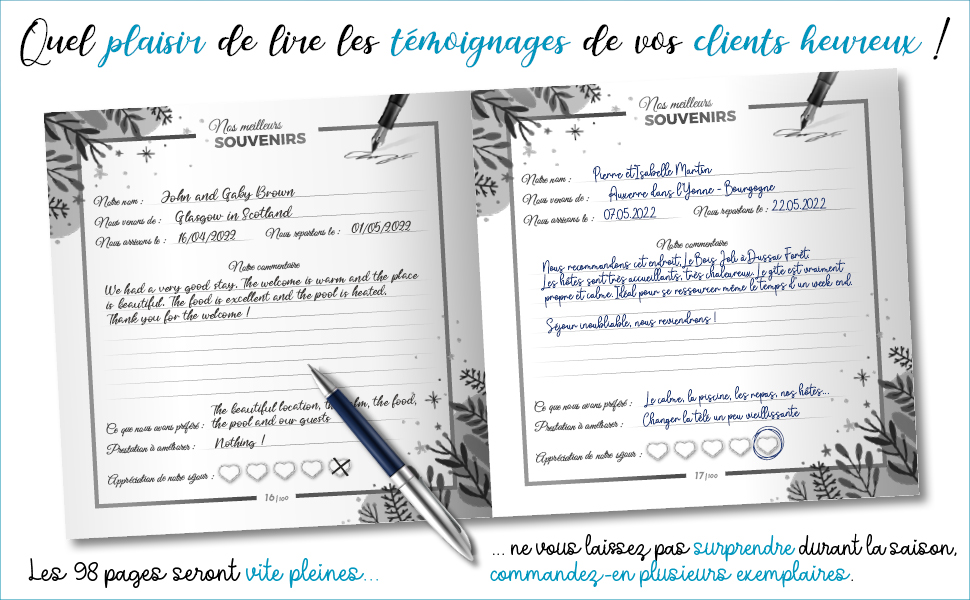 Quel plaisir de lire les témoignages de vos clients heureux !
Nos meilleurs
SOUVENIRS
Notre nom : John and Gaby Brown
Nous venons de : Glasgow in Scotland
Nous arrivons le : 16/04/2022 Nous repartons le : 01/05/2022
Notre commentaire
We had a very good stay. The welcome is warm and the place
is beautiful. The food is excellent and the pool is heated.
Thank you for the welcome !
The beautiful location, the calm, the food,
Ce que nous avons préféré : the pool and our guests
Prestation à améliorer : Nothing !
Appréciation de notre séjour :
16/100
Nos meilleurs
SOUVENIRS
Notre nom : Pierre et Isabelle Martin
Nous venons de : Auxerre dans l'Yonne - Bourgogne
Nous arrivons le : 07.05.2022 Nous repartons le : 22.05.2022
Notre commentaire
Nous recommandons cet endroit, Le Bois Joli à Dussai Forêt.
Les hôtes sont très accueillants, très chaleureux. Le gîte est vraiment
propre et calme. Idéal pour se ressourcer même le temps d'un week end.
Séjour inoubliable, nous reviendrons !
Ce que nous avons préféré : Le calme, la piscine, les repas, nos hôtes...
Prestation à améliorer : Changer la télé un peu vieillissante
Appréciation de notre séjour :
17/100
Les 98 pages seront vite pleines...
... ne vous laissez pas surprendre durant la saison,
commandez-en plusieurs exemplaires.